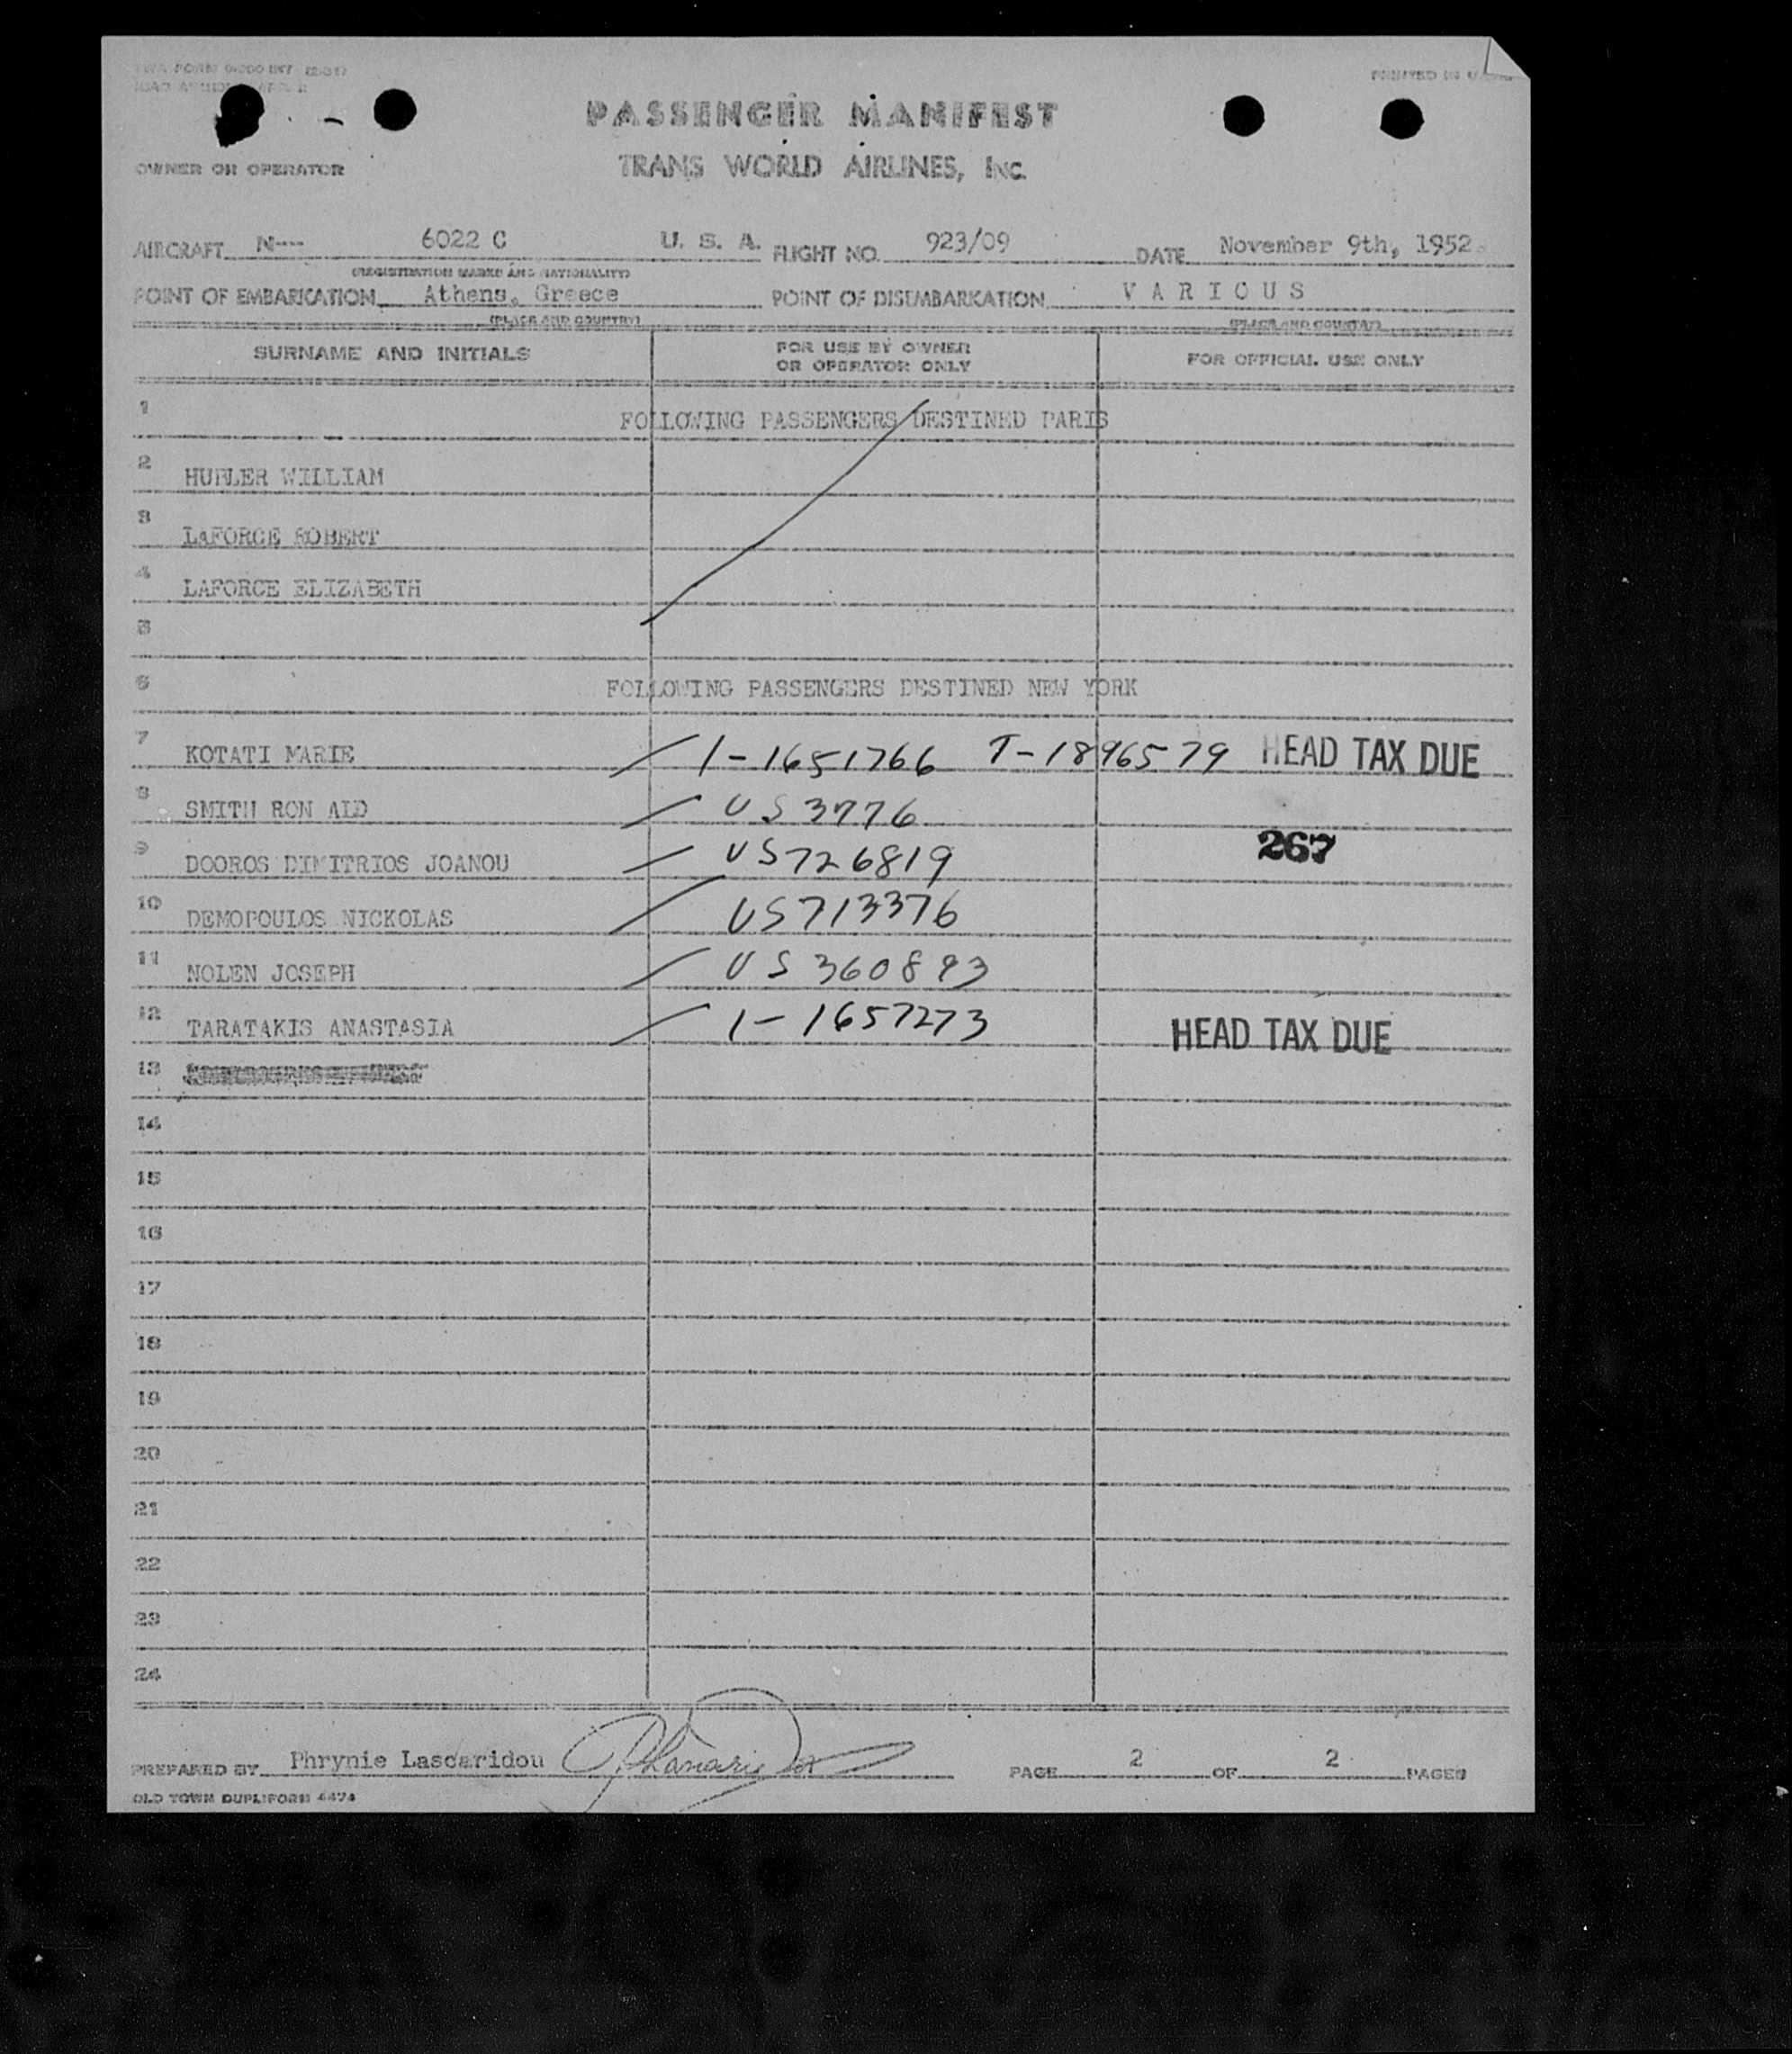 PRINTED IN U.S.A.
PASSENGER MANIFEST
OWNER OR OPERATOR TRANS WORLD AIRLINES, INC.
AIRCRAFT N--- 6022 C U. S. A. FLIGHT NO. 923/09 DATE November 9th, 1952.
(REGISTRATION MARKS AND NATIONALITY)
POINT OF EMBARKATION Athens, Greece POINT OF DISEMBARKATION VARIOUS
(PLACE AND COUNTRY) (PLACE AND COUNTRY)
SURNAME AND INITIALS FOR USE BY OWNER OR OPERATOR ONLY FOR OFFICIAL USE ONLY
1 FOLLOWING PASSENGERS DESTINED PARIS
2 WILLIAM
3 LAFORCE ROBERT
4 LAFORCE ELIZABETH
5
6 FOLLOWING PASSENGERS DESTINED NEW YORK
7 KOTATI MARIE 1-1651766 T-1896579 HEAD TAX DUE
8 SMITH RON ALD US 3776
267
9 DOOROS DIMITRIOS JOANOU US726819
10 DEMOPOULOS NICKOLAS US713376
11 NOLEN JOSEPH US 360893
12 TARATAKIS ANASTASIA 1-1657273 HEAD TAX DUE
13
14
15
16
17
18
19
20
21
22
23
24
PREPARED BY Phrynie Lascaridou PAGE 2 OF 2 PAGES
OLD TOWN DUPLIFORM 4474